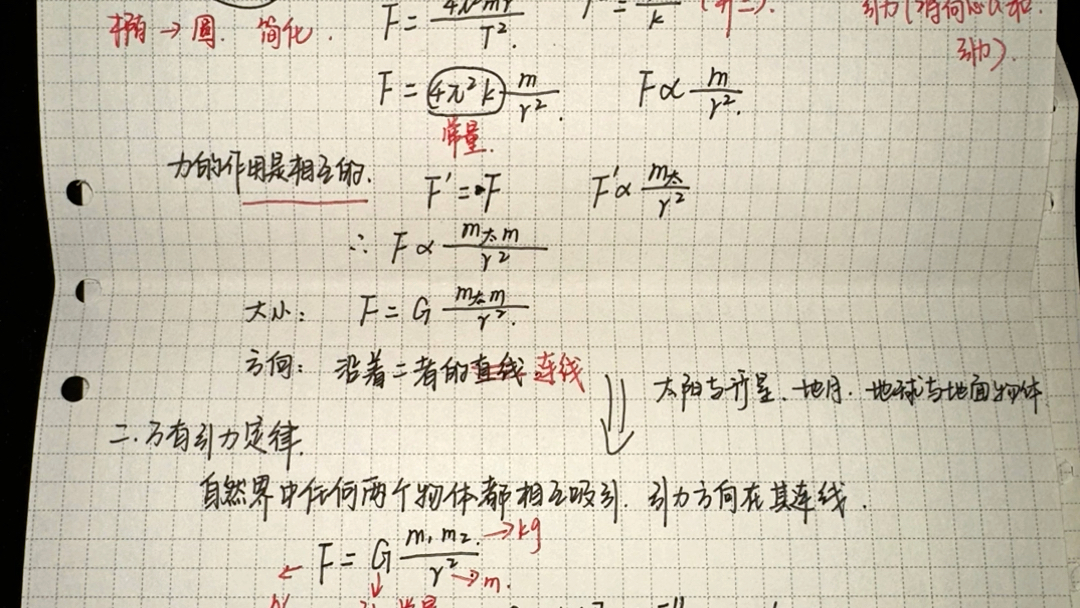 椭 → 圆. 简化. F = 4π²mr / T².
F = 4π²k m/r². F ∝ m/r².
常量.
力的作用是相互的. F' = F F' ∝ m太/r²
∴ F ∝ m太m/r²
大小: F = G m太m/r².
方向: 沿着二者的直线 连线
太阳与行星、地月. 地球与地面物体
二.万有引力定律.
自然界中任何两个物体都相互吸引. 引力方向在其连线.
F = G m₁m₂/r² → kg
→ m.